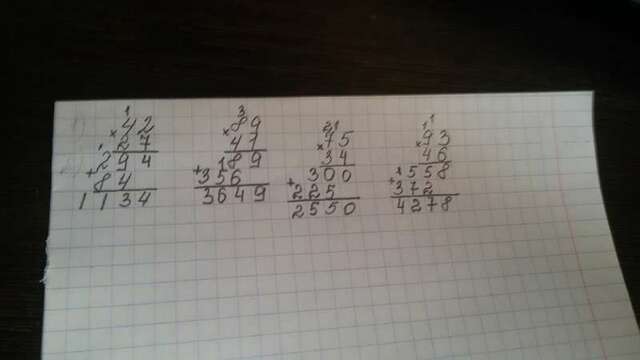 1
42
× 27
1
294
+ 84
1134
3
89
× 41
1
89
+ 356
3649
21
75
× 34
300
+ 225
2550
11
93
× 46
1
558
+ 372
4278